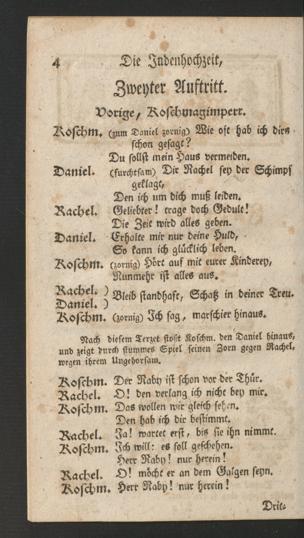 4 Die Judenhochzeit,
Zweyter Auftritt.
Vorige, Koschmagimperr.
Koschm. (zum Daniel zornig) Wie oft hab ich dirs
schon gesagt?
Du sollst mein Haus vermeiden.
Daniel. (furchtsam) Dir Rachel sey der Schimpf
geklagt,
Den ich um dich muß leiden.
Rachel. Geliebter! trage doch Gedult!
Die Zeit wird alles geben.
Daniel. Erhalte mir nur deine Huld,
So kann ich glücklich leben.
Koschm. (zornig) Hört auf mit eurer Kinderey,
Nunmehr ist alles aus.
Rachel. )
Daniel. ) Bleib standhaft, Schatz in deiner Treu.
Koschm. (zornig) Ich sag, marschier hinaus.
Nach diesem Terzet stoßt Koschm. den Daniel hinaus,
und zeigt durch stummes Spiel seinen Zorn gegen Rachel,
wegen ihrem Ungehorsam.
Koschm. Der Raby ist schon vor der Thür.
Rachel. O! den verlang ich nicht bey mir.
Koschm. Das wollen wir gleich sehen.
Den hab ich dir bestimmt.
Rachel. Ja! wartet erst, bis sie ihn nimmt.
Koschm. Ich will: es soll geschehen.
Herr Raby! nur herein!
Rachel. O! möcht er an dem Galgen seyn.
Koschm. Herr Raby! nur herein!
Drit-